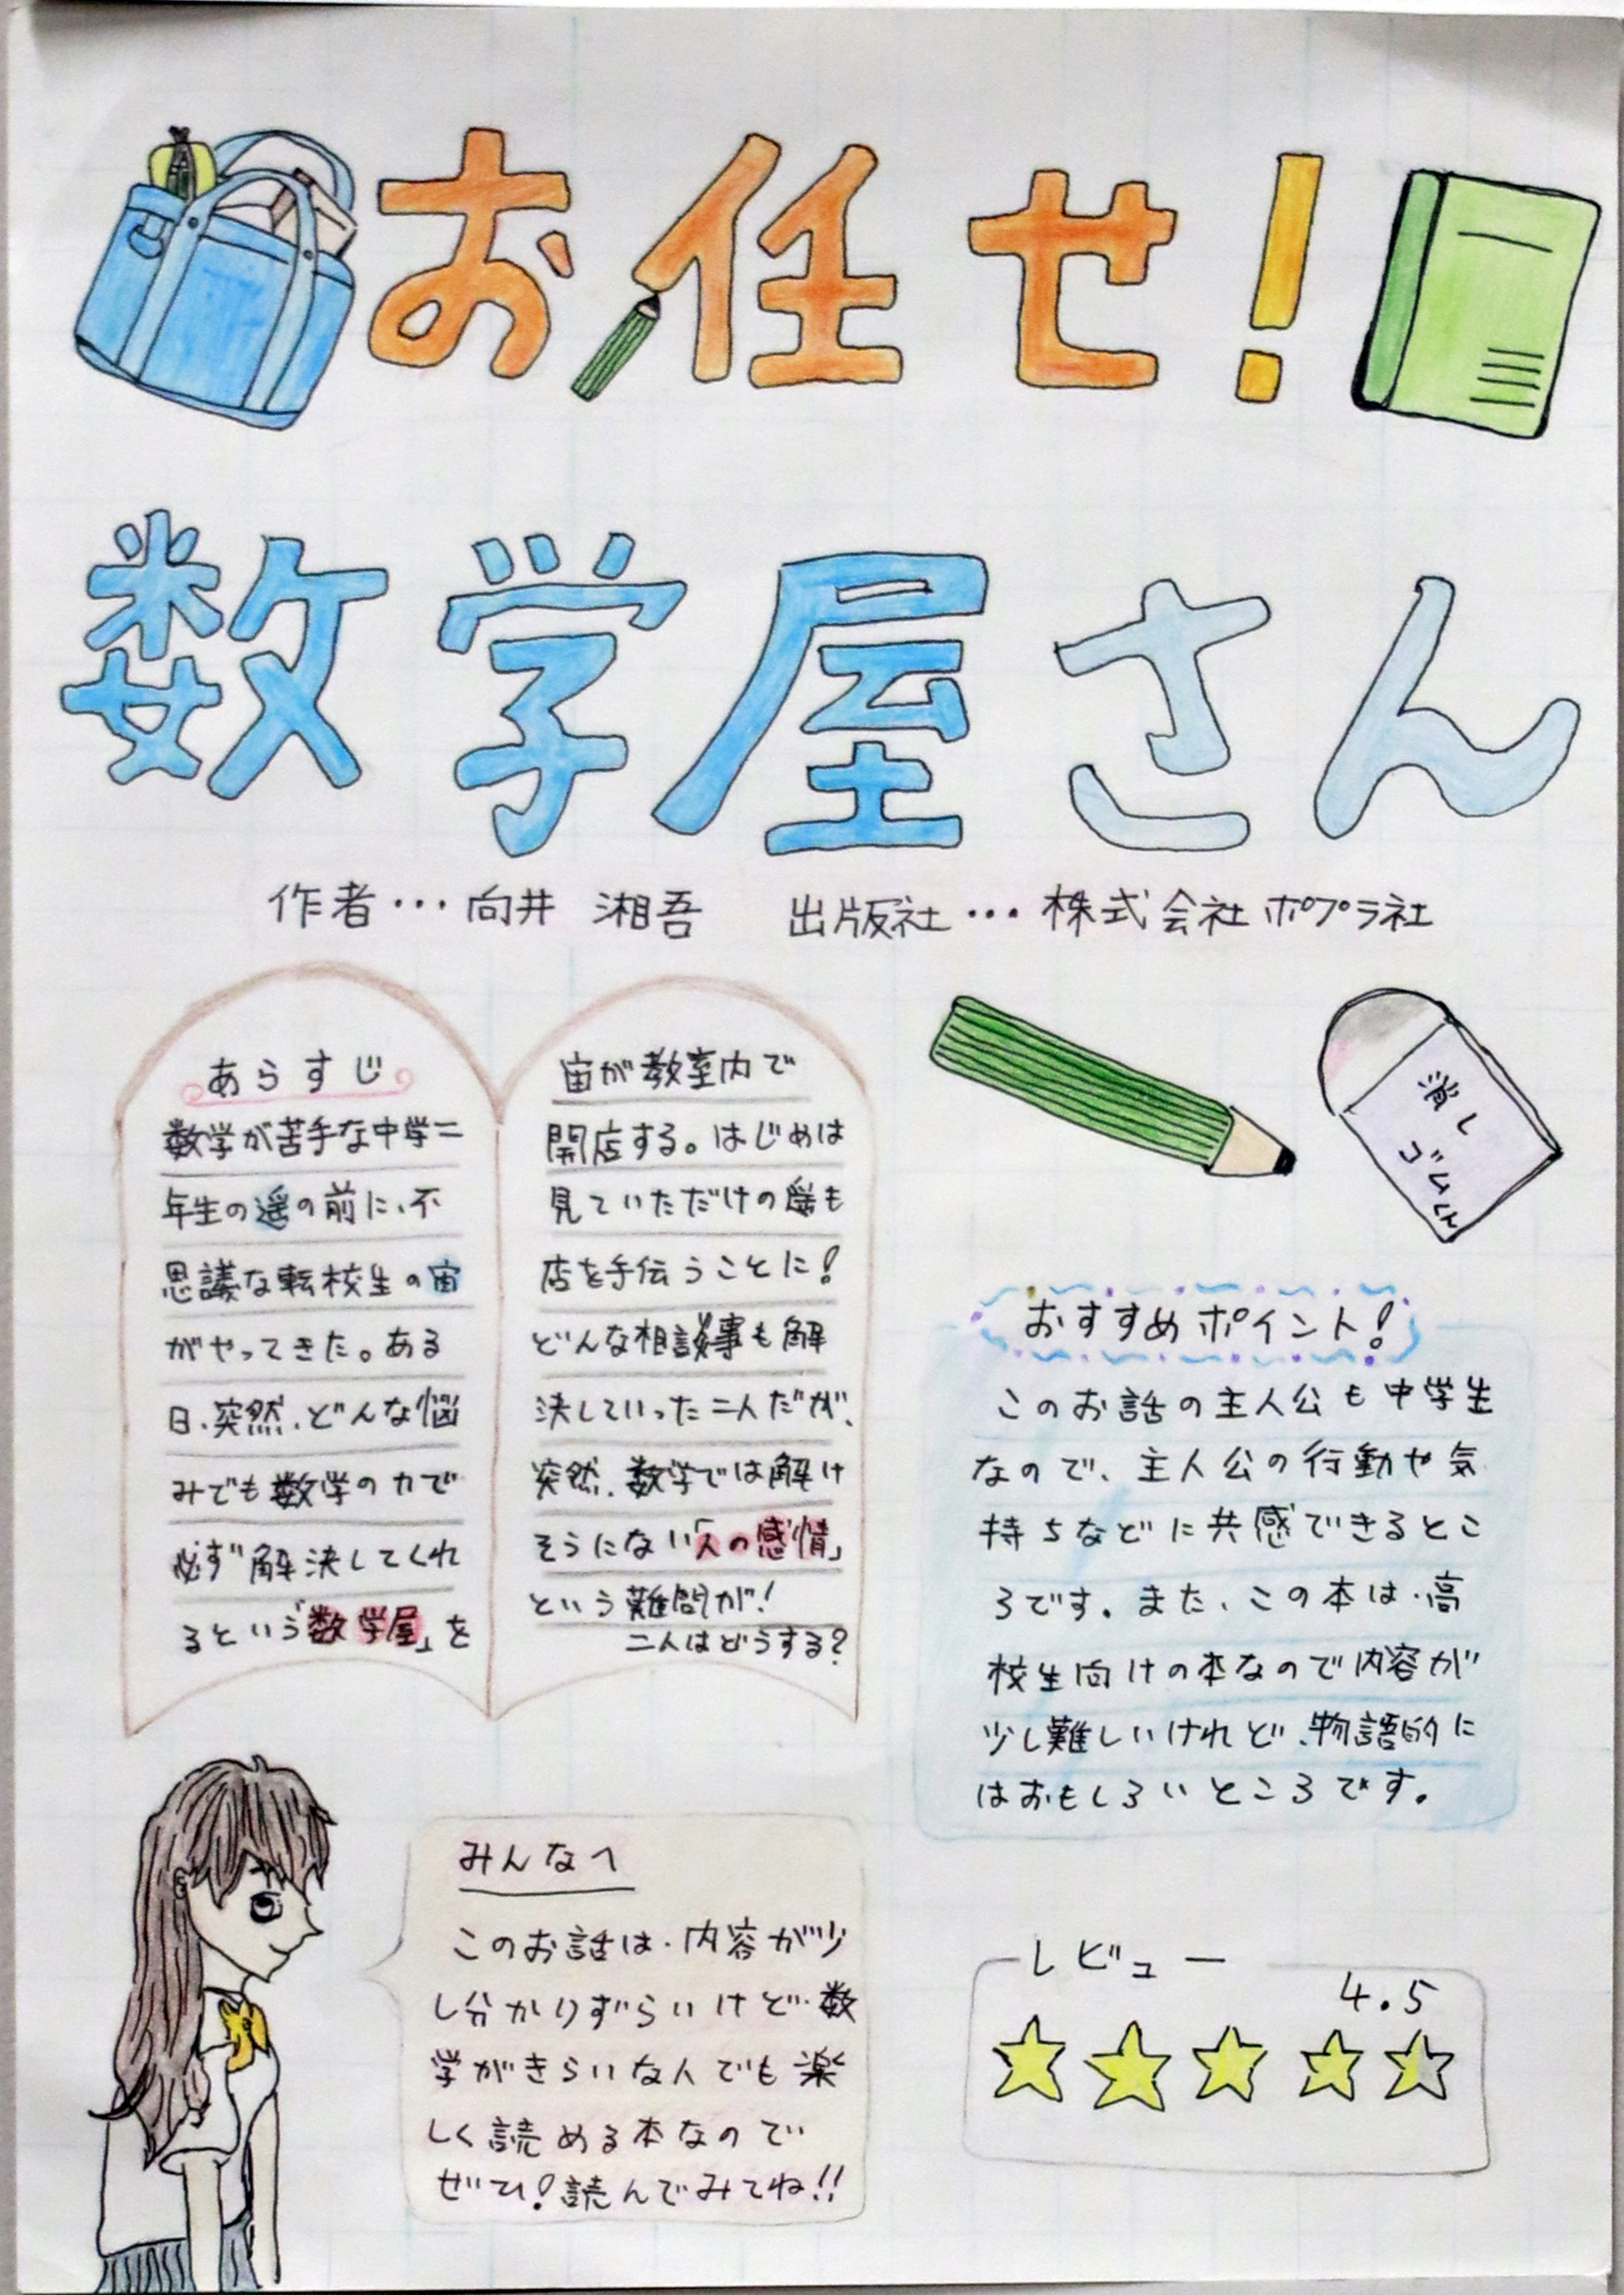 お任せ!
数学屋さん
作者…向井 湘吾 出版社…株式会社ポプラ社
あらすじ
数学が苦手な中学二
年生の遥の前に、不
思議な転校生の宙
がやってきた。ある
日、突然、どんな悩
みでも数学の力で
必ず解決してくれ
るという「数学屋」を
宙が教室内で
開店する。はじめは
見ていただけの遥も
店を手伝うことに!
どんな相談事も解
決していった二人だが、
突然、数学では解け
そうにない「人の感情」
という難問が!
二人はどうする?
消し
ゴムくん
おすすめポイント!
このお話の主人公も中学生
なので、主人公の行動や気
持ちなどに共感できるとこ
ろです。また、この本は、高
校生向けの本なので内容が
少し難しいけれど、物語的に
はおもしろいところです。
みんなへ
このお話は、内容が少
し分かりずらいけど、数
学がきらいな人でも楽
しく読める本なので
ぜひ!読んでみてね!!
レビュー
4.5